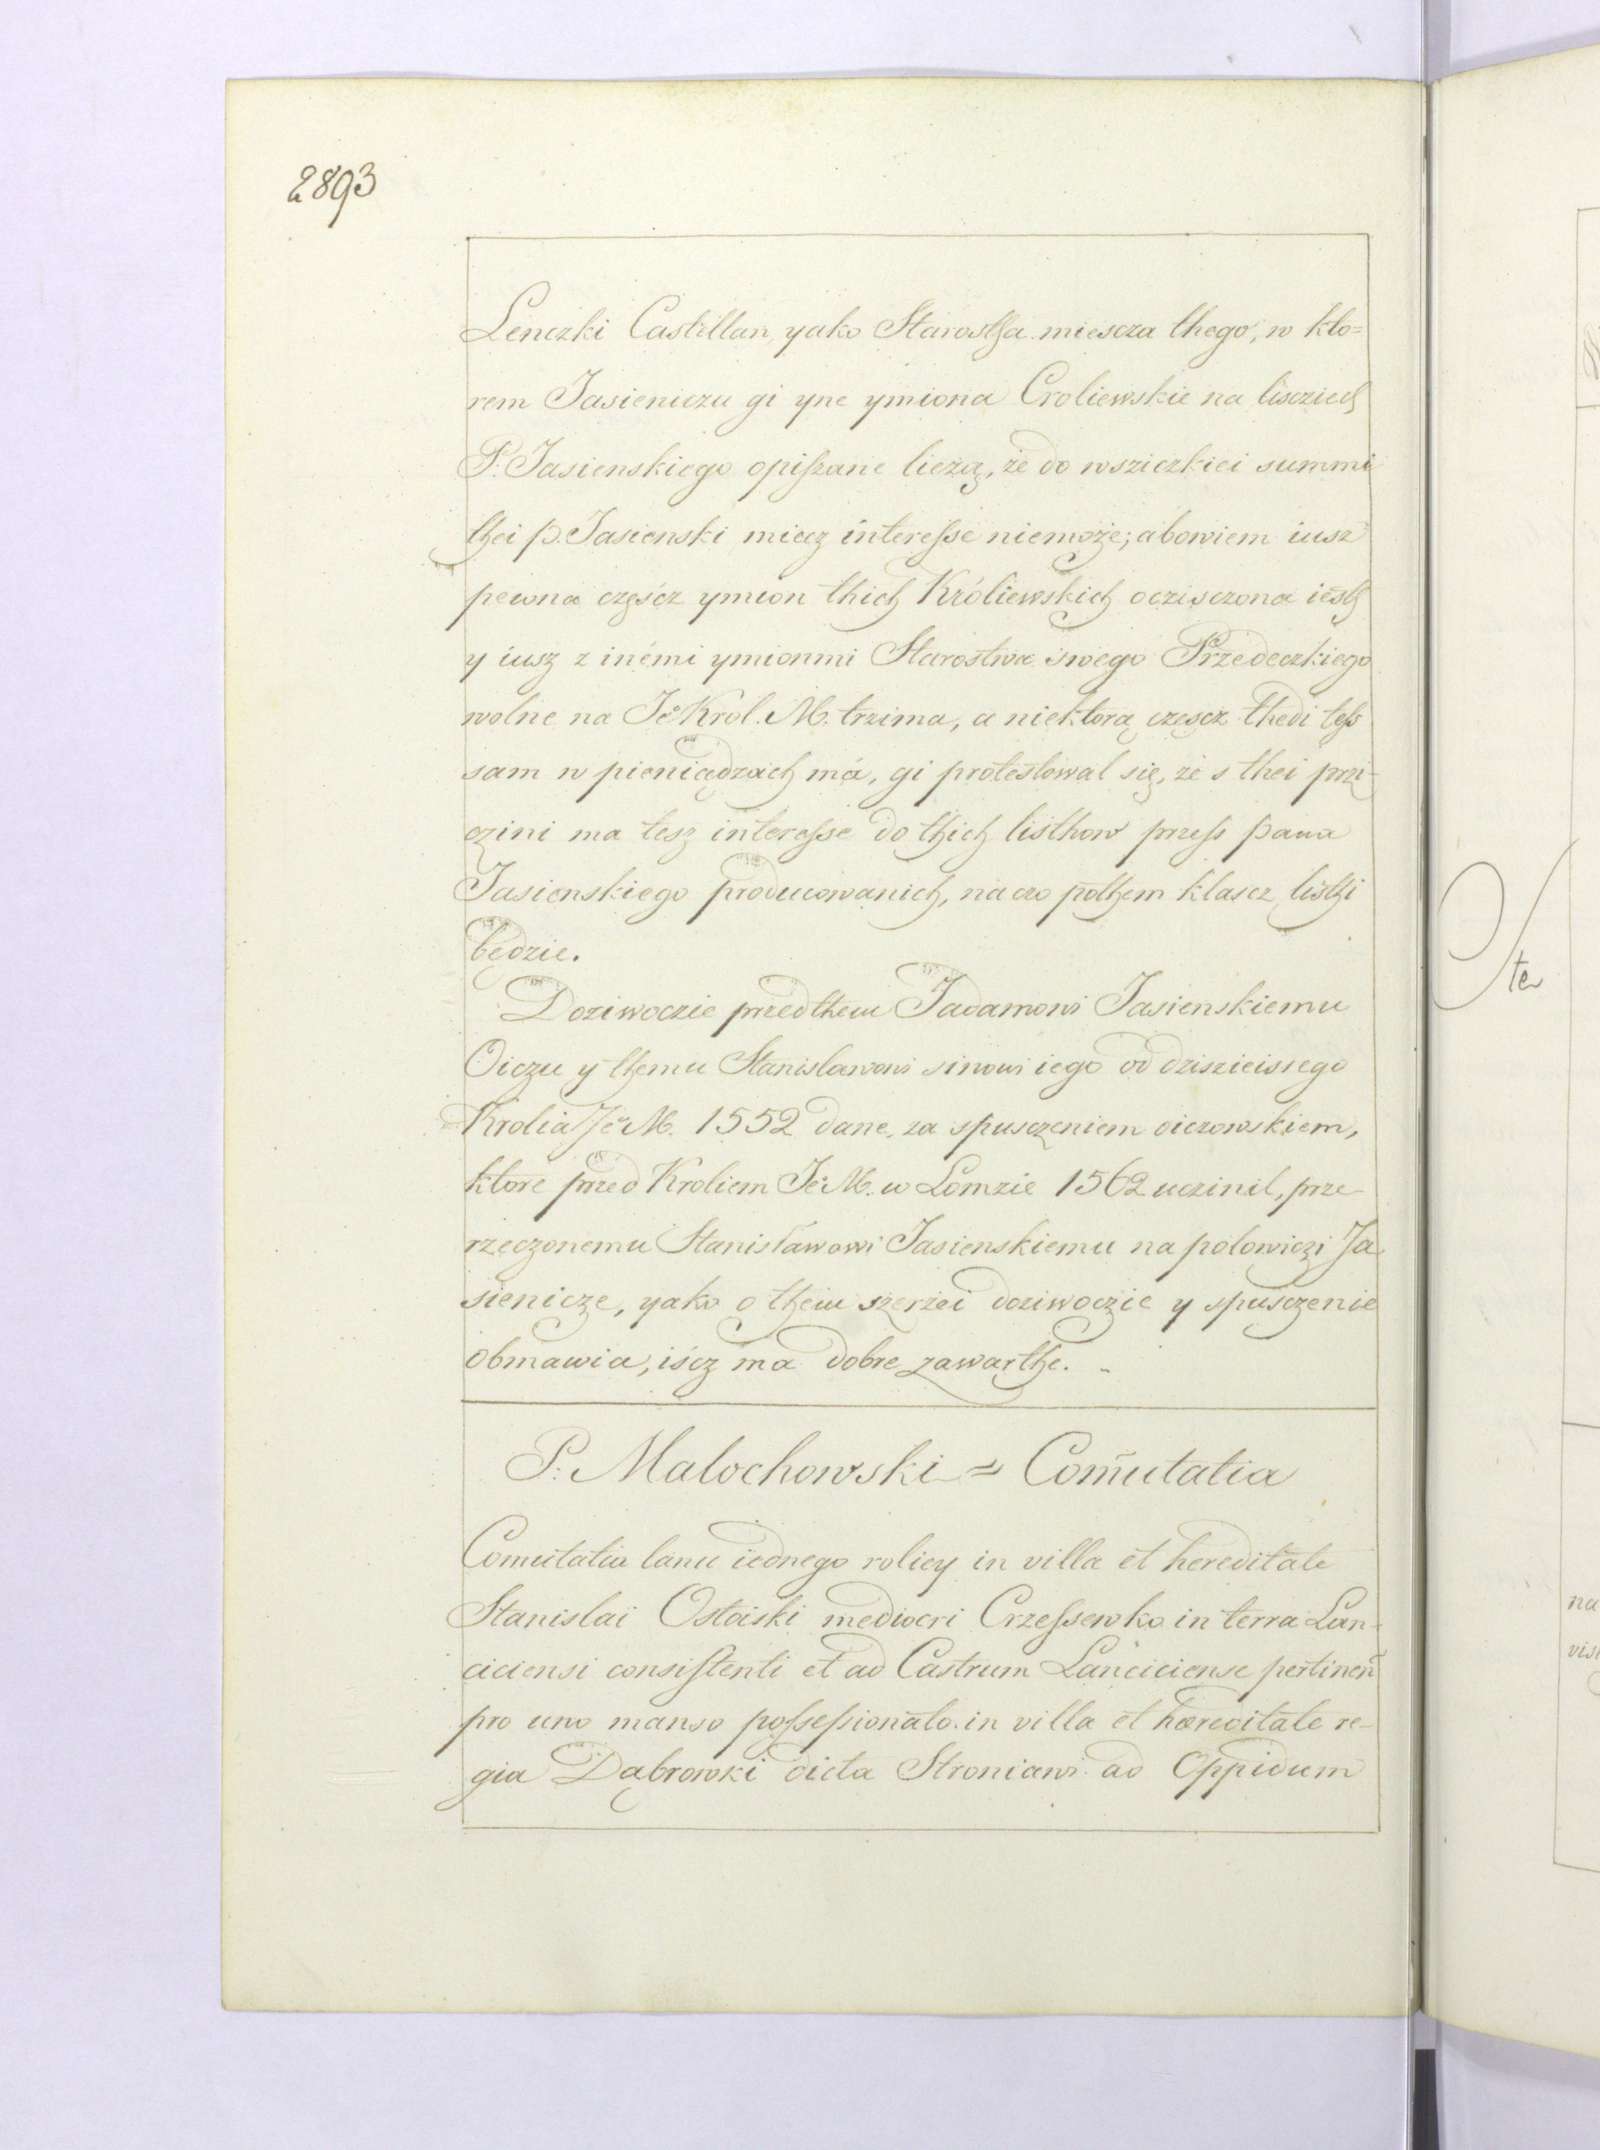 2893
Lenczki Castellan, yako Starostha miescza thego, w kto=
rem Jasieniczu gi yne ymiona Croliewskie na lisciech
P. Jasienskiego opiszane lieżą, że do wsziczkiei summi
thei p. Jasienski miecz interesse niemoże; abowiem iusz
pewna częścz ymion thich Króliewskich ocziszczona iesth
y iusz z inémi ymionmi Starostwa swego Przedeczkiego
wolne na Jeº Krol. M. trzima, a niektora, czescz thedi tess
sam w pieniądzach má, gi protestowal się, że s thei przi-
czini ma tesz interesse do thich listhow przess pana
Jasienskiego producowanich, na czo pothem klascz listhi
będzie.
Doziwoczie przedtheu Jadamowi Jasienskiemu
Oiczu y themu Stanislawowi sinowi iego od dzisieissego
Krolia Jeº M. 1552 dane, za spusczeniem oiczowskiem,
ktore przed Kroliem Jeº M. w Lomzie 1562 uczinil, prze-
rzęczonemu Stanisławowi Jasienskiemu na polowiczi Ja
sienicze, yako o theiu szerzei doziwoczie y spusczenie
obmawia, iścz ma dobre zawarthe.
P. Malochowski = Com̃utatia
Comutatia lanu iednego roliey in villa et hereditate
Stanislai Ostoiski mediocri Crzessewko in terra Lan=
ciciensi consistenti et ad Castrum Lanciciense pertineñ
pro uno manso possessionato in villa et hœreditate re-
gia Dąbrowki dicta Stroniawi ad Oppidum
te
na
visi